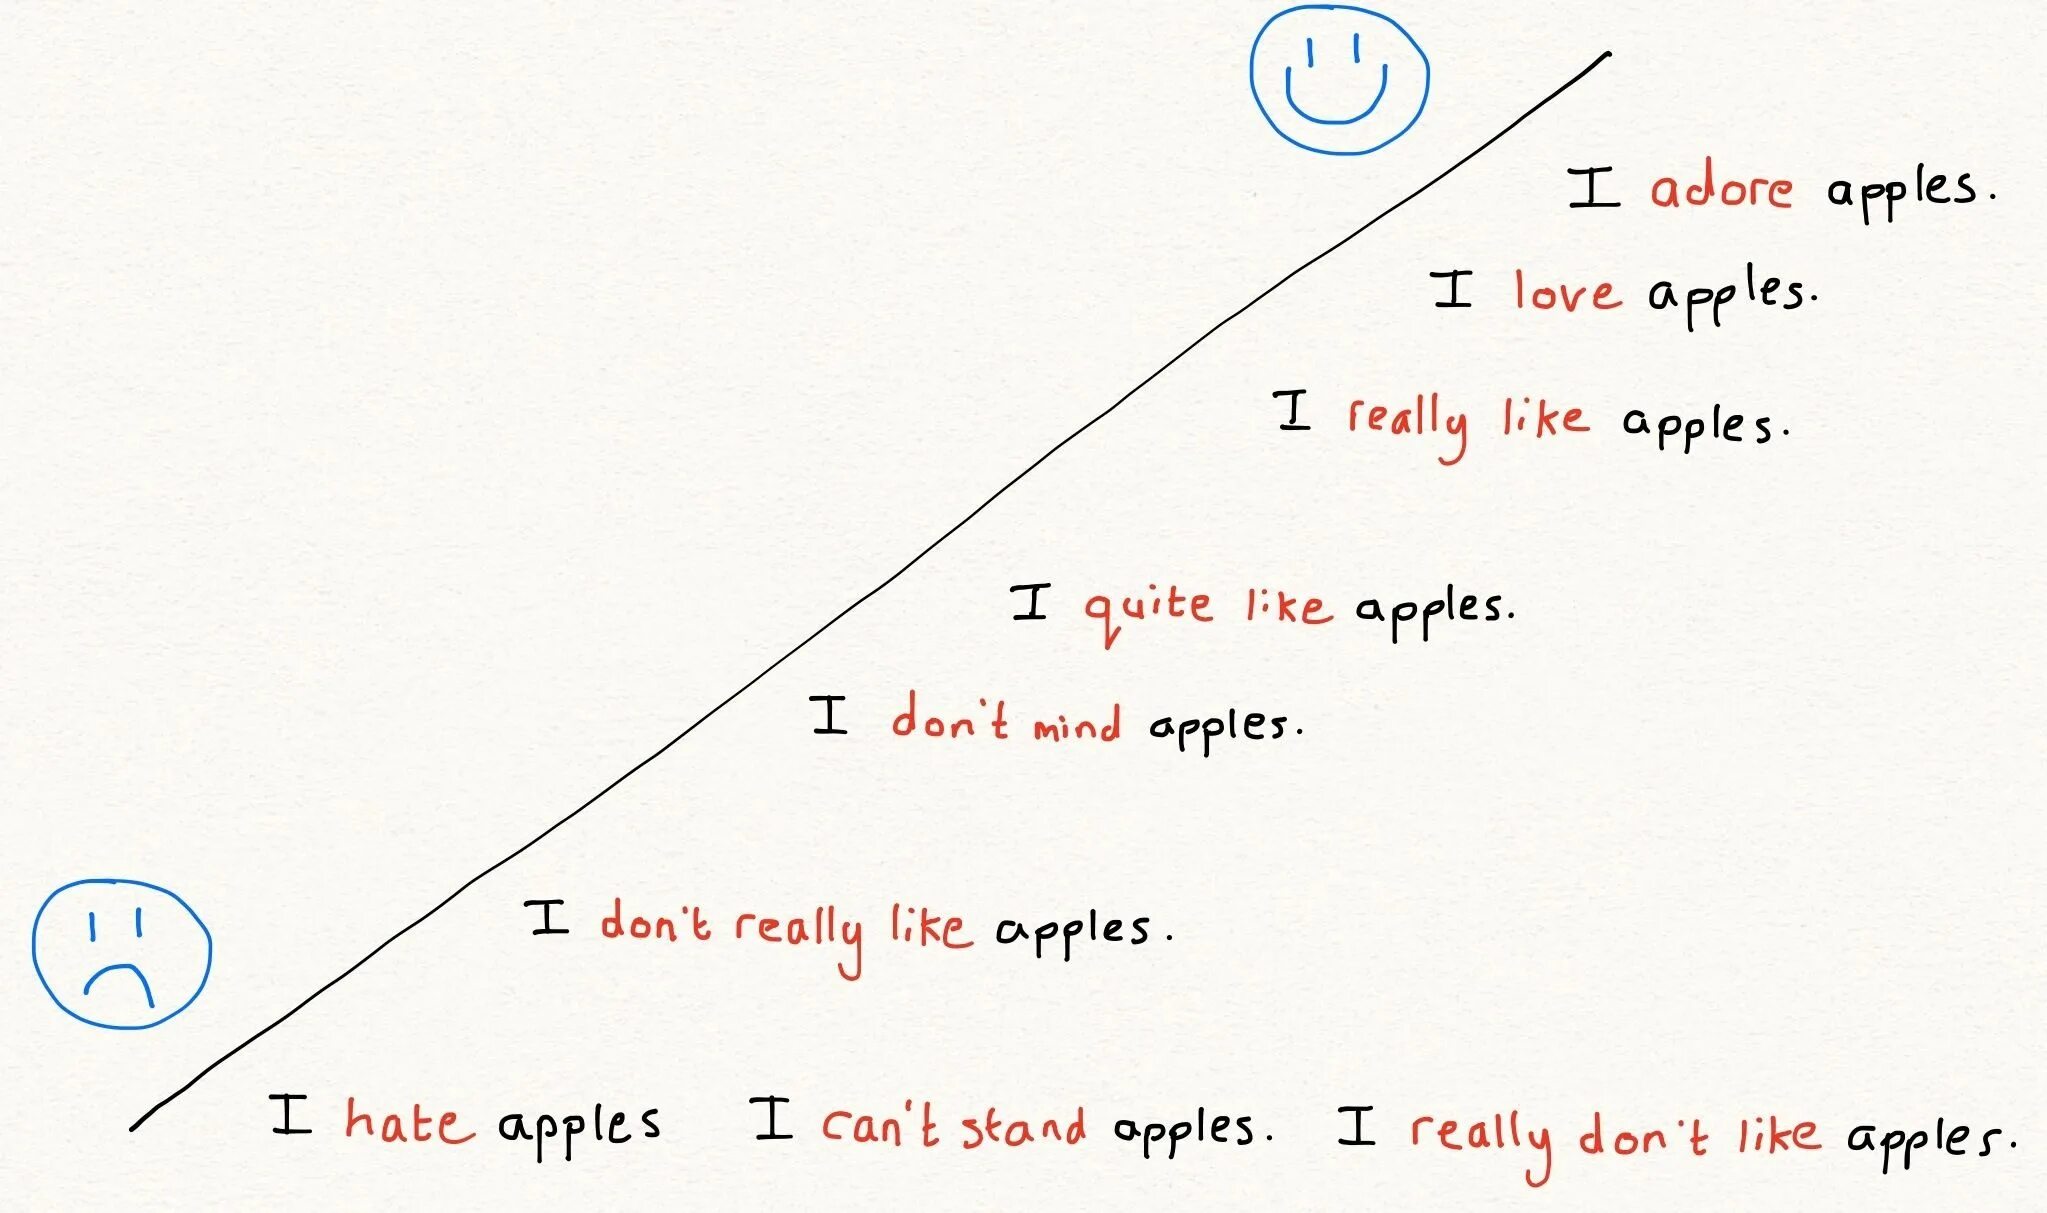 I adore apples.
I love apples.
I really like apples.
I quite like apples.
I don't mind apples.
I don't really like apples.
I hate apples I can't stand apples. I really don't like apples.